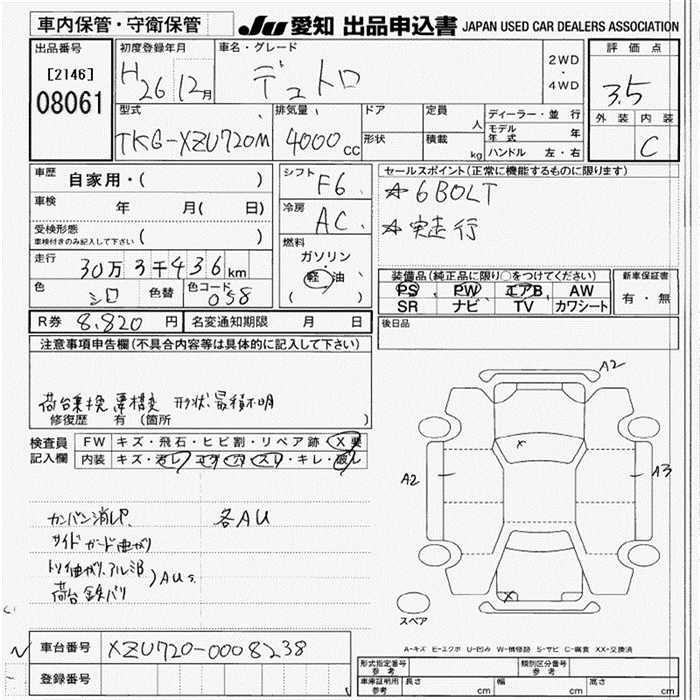 車内保管・守衛保管
JU 愛知 出品申込書 JAPAN USED CAR DEALERS ASSOCIATION
出品番号 初度登録年月 車名・グレード 評価点
[2146]
08061
H26 12月 デュトロ 2WD・4WD 3.5
型式 排気量 ドア 定員 人 ディーラー・並行 外装 内装
TKG-XZU720M 4000cc 形状 積載 kg モデル年式 年 C
ハンドル 左・右
車歴 自家用・( ) シフト F6 セールスポイント(正常に機能するものに限ります)
☆6BOLT
車検 年 月( 日) 冷房 AC
☆実走行
受検形態 ( )
車検付きのみ記入して下さい
燃料 ガソリン・軽油 ( )
走行 30万3千436km
装備品(純正品に限り○をつけてください) 新車保証書
色 シロ 色替 色コード 058
PS PW エアB AW 有・無
SR ナビ TV カワシート
R券 8,820円 名変通知期限 月 日 後日品
注意事項申告欄(不具合内容等は具体的に記入して下さい)
形状、最積不明
修復歴 有 (箇所 )
検査員記入欄 FW キズ・飛石・ヒビ割・リペア跡・X要
内装 キズ・汚レ・コゲ・穴・スレ・キレ・破レ
A2
A2
A3
X
X
カンバン消しP. 各AU
サイドガード曲がり
トリイ曲がり、アルミB )AUs
荷台鉄バリ
スペア
A-キズ E-エクボ U-凹み W-補修跡 S-サビ C-腐食 XX-交換済
車台番号 XZU720-0008238
登録番号
形式指定番号 参考 類別区分番号 参考
車庫証明用 参考 長さ cm 幅 cm 高さ cm